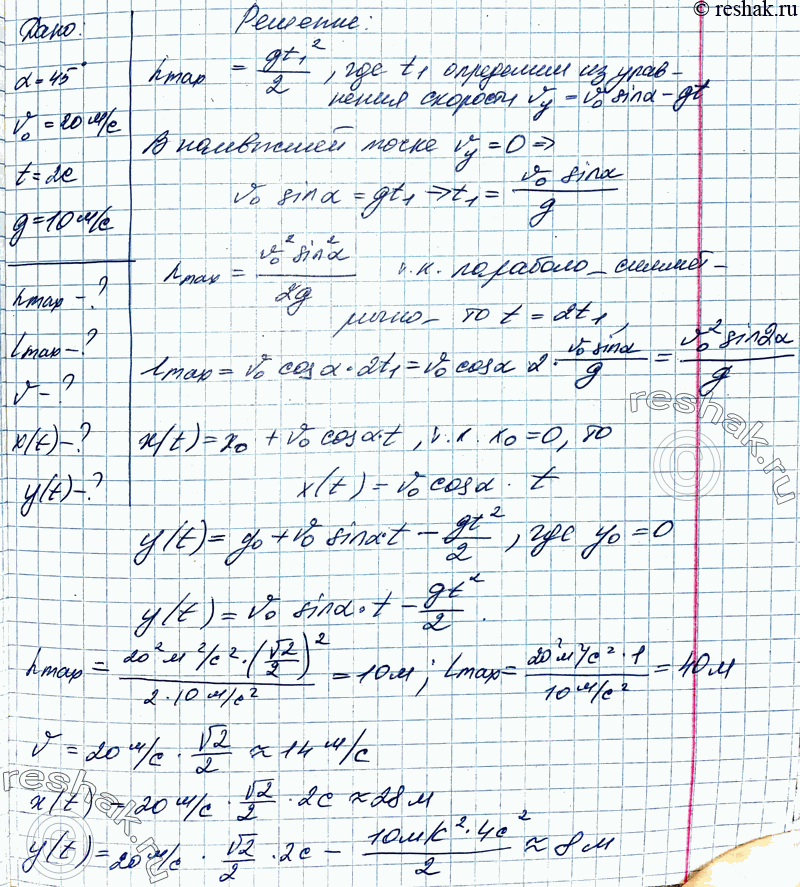 © reshak.ru
Дано:
α = 45°
v₀ = 20 м/с
t = 2с
g = 10 м/с
hmax - ?
lmax - ?
v - ?
x(t) - ?
y(t) - ?
Решение:
hmax = gt₁²/2, где t₁ определим из урав-
нения скорости vy = v₀ sinα - gt
В наивысшей точке vy = 0 ⇒
v₀ sinα = gt₁ ⇒ t₁ = v₀ sinα/g
hmax = v₀² sin²α/2g т.к. парабола симмет-
рично то t = 2t₁,
lmax = v₀ cosα · 2t₁ = v₀ cosα 2 · v₀ sinα/g = v₀² sin2α/g
x(t) = x₀ + v₀ cosα·t, т.к. x₀ = 0, то
x(t) = v₀ cosα · t
y(t) = y₀ + v₀ sinαt - gt²/2, где y₀ = 0
y(t) = v₀ sinα · t - gt²/2.
hmax = 20² м²/с² · (√2/2)²/2 · 10 м/с² = 10м; lmax = 20² м²/с² · 1/10 м/с² = 40м
v = 20 м/с · √2/2 ≈ 14 м/с
x(t) = 20 м/с · √2/2 · 2с ≈ 28м
y(t) = 20 м/с · √2/2 · 2с - 10м/с² · 4с²/2 ≈ 8м
reshak.ru
©
reshak.ru
©